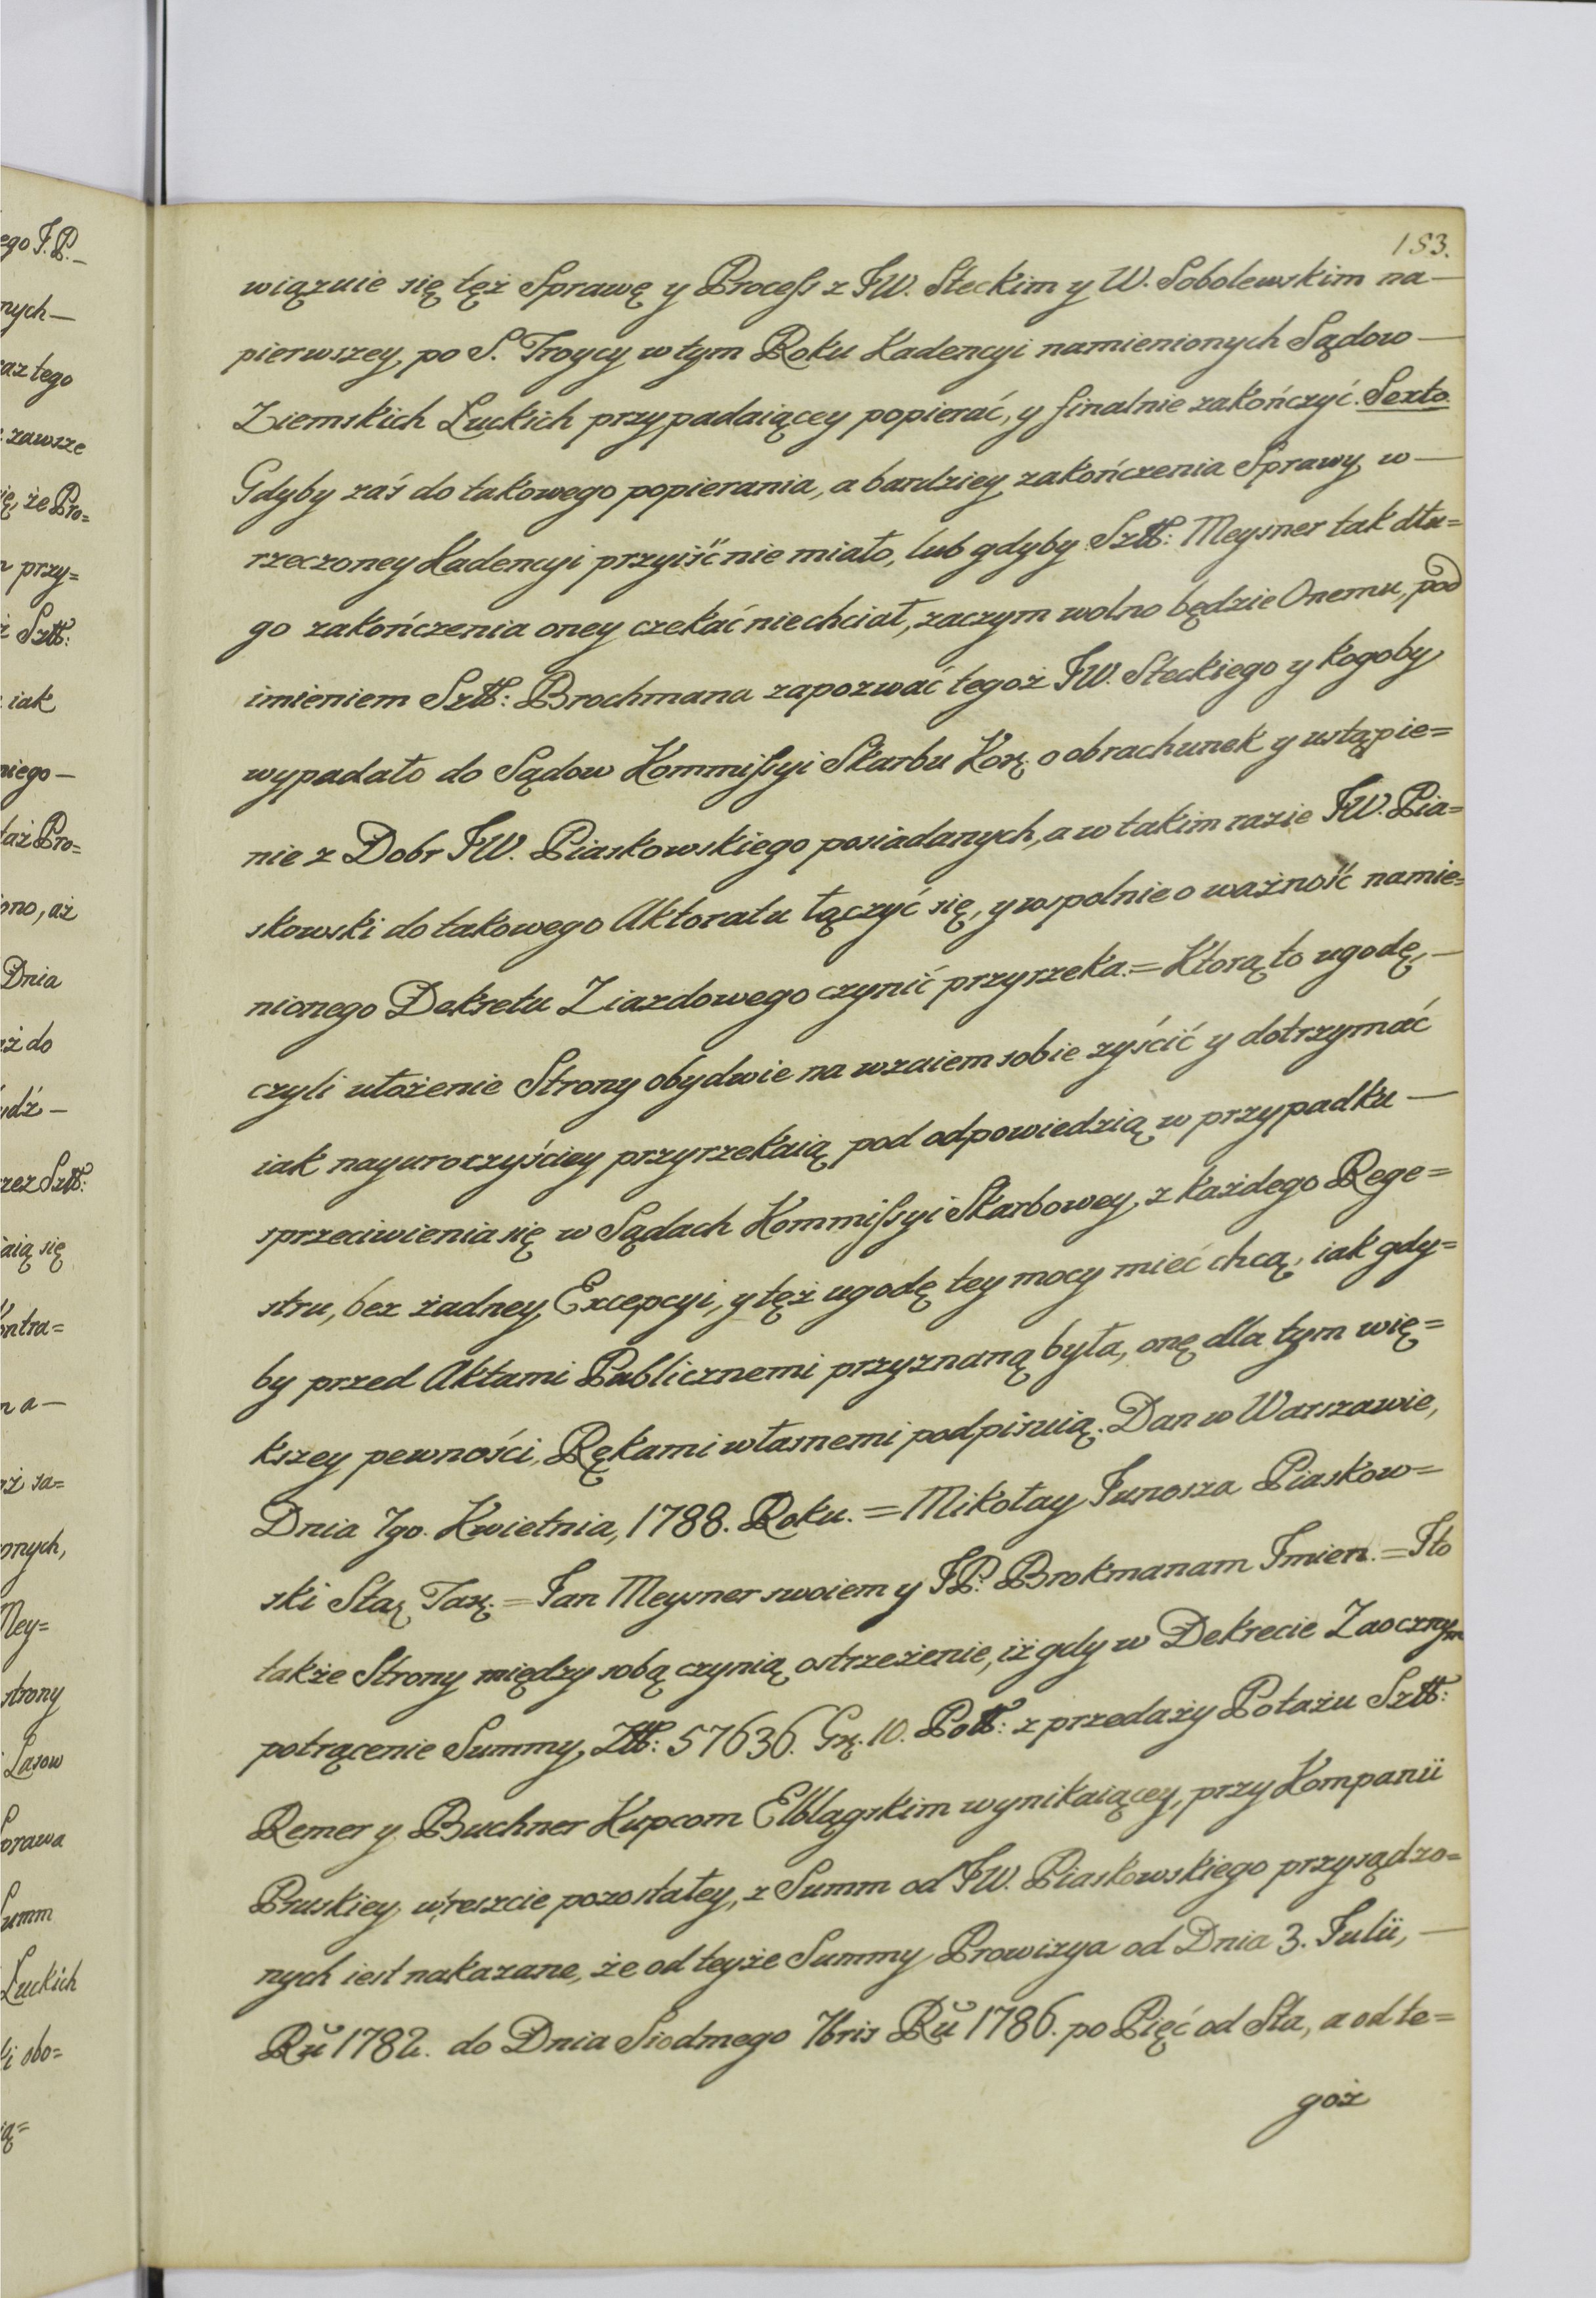 183.
wiązuie się tęż Sprawę y Process z JW. Steckim y W. Sobolewskim na —
pierwszey, po S. Troycy w tym Roku Kadencyi namienionych Sądow —
Ziemskich Łuckich przypadaiącey popierać, y finalnie zakończyć. Sexto.
Gdyby zaś do takowego popierania, a bardziey zakończenia Sprawy w —
rzeczoney Kadencyi przyiść nie miało, lub gdyby Sztt: Meysner tak dłu=
go zakończenia oney czekać nie chciał, zaczym wolno będzie Onemu, pod
imieniem Sztt: Brochmana zapozwać tegoż JW. Steckiego y kogoby
wypadało do Sądow Kommissyi Skarbu Kor. o obrachunek y ustąpie=
nie z Dobr JW. Piaskowskiego posiadanych, a w takim razie JW. Pia=
skowski do takowego Aktoratu łączyć się, y wspolnie o ważność namie=
nionego Dekretu Ziazdowego czynić przyrzeka. = Ktorą to ugodę, —
czyli ułożenie Strony obydwie na wzaiem sobie zyścić y dotrzymać
iak nayuroczyściey przyrzekaią pod odpowiedzią w przypadku —
sprzeciwienia się w Sądach Kommissyi Skarbowey, z każdego Rege=
stru, bez żadney Excepcyi, y tęż ugodę tey mocy mieć chcą, iak gdy=
by przed Aktami Publicznemi przyznaną była, onę dla tym wię=
kszey pewności, Rękami własnemi podpisuią. Dan w Warszawie,
Dnia 7go. Kwietnia, 1788. Roku. = Mikołay Junosza Piaskow=
ski Star. Tar. = Jan Meysner swoiem y JP. Brokmanam Jmien. = Jto
także Strony między sobą czynią ostrzeżenie, iż gdy w Dekrecie Zaocznym
potrącenie Summy, Ztt: 57636. Gr. 10. Pott: z przedaży Potażu Sztt:
Remer y Buchner Kupcom Elblągskim wynikaiącey, przy Kompanii
Pruskiey, w reszcie pozostałey, z Summ od JW. Piaskowskiego przysądzo=
nych iest nakazane, że od teyże Summy Prowizya od Dnia 3. Julii, —
Rŭ 1782. do Dnia Siodmego 7bris Rŭ 1786. po Pięć od Sta, a od te=
goż